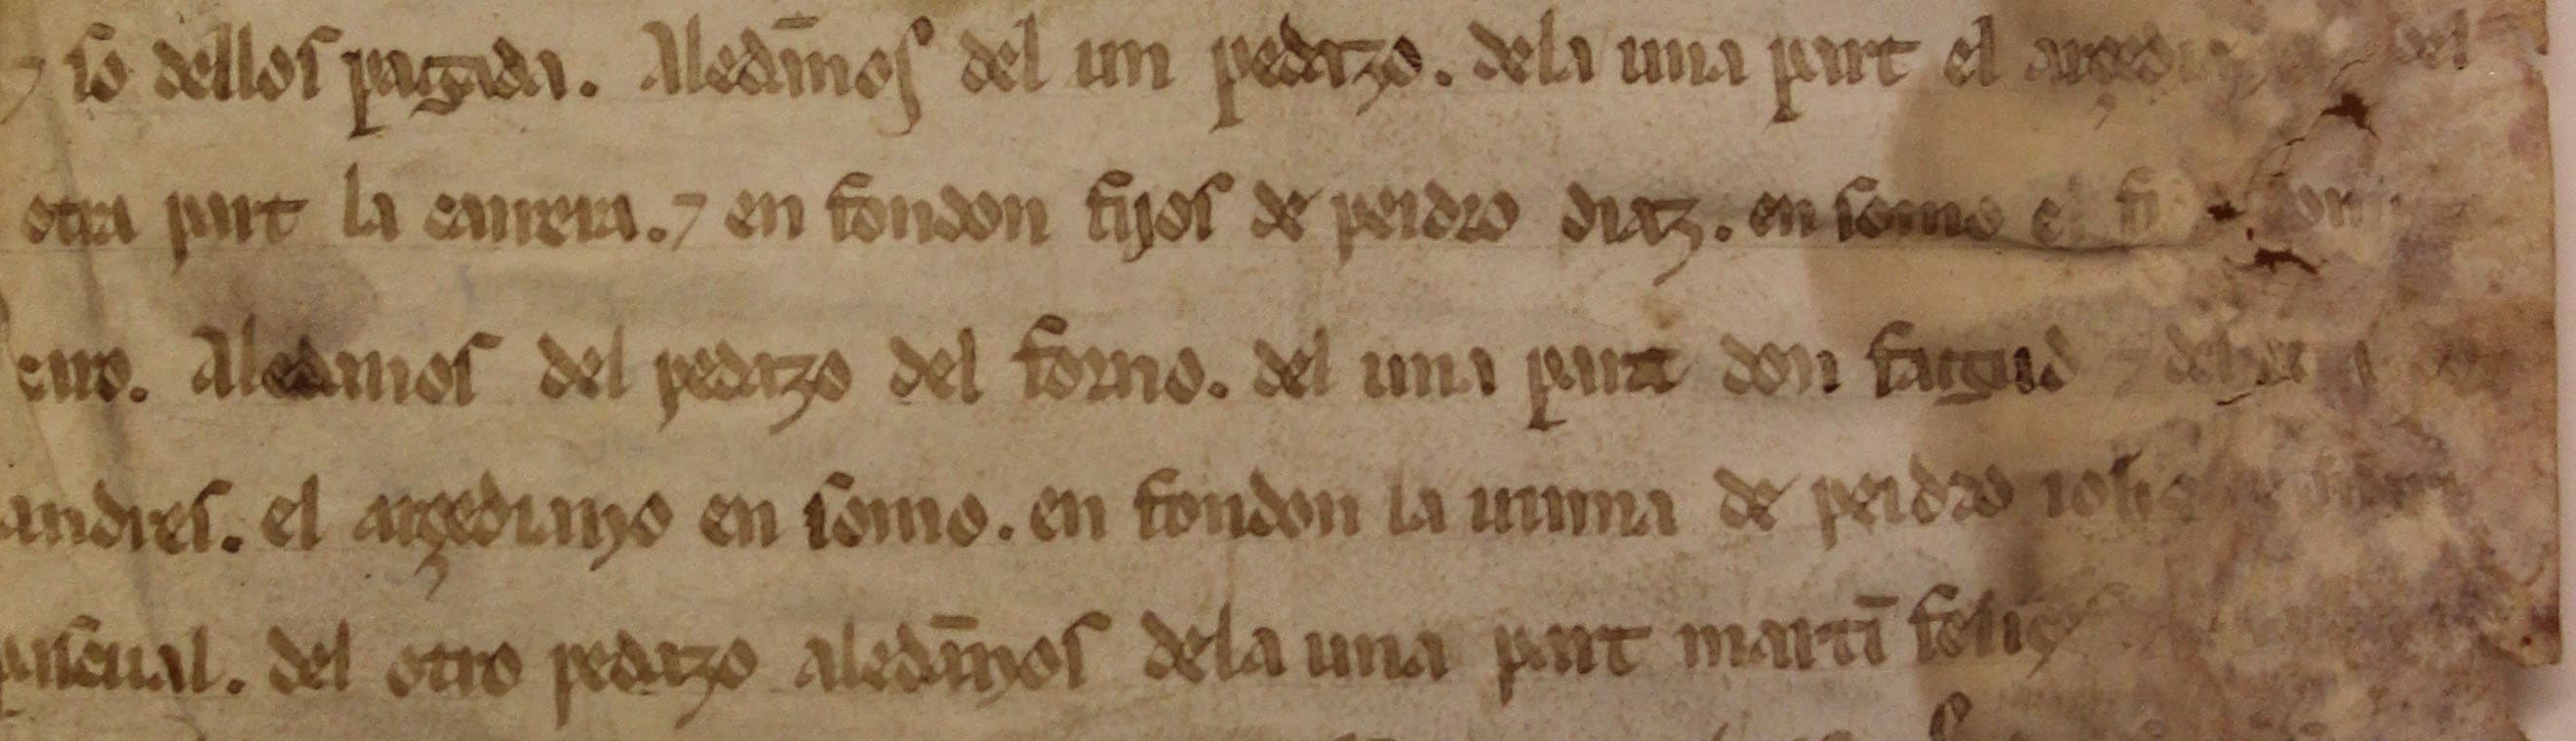 ⁊ so dellos pagada. Aledan̄os del un pedazo. dela una part el arçediano del
otra part la carrera. ⁊ en fondon fijos de peidro diaz. en somo el
Aledanos del pedazo del forno. del una part don ⁊ del
andres. el arçedianyo en somo. en fondon la uinna de peidro
pascual. del otro pedazo aledān̄yos dela una part martī feliç